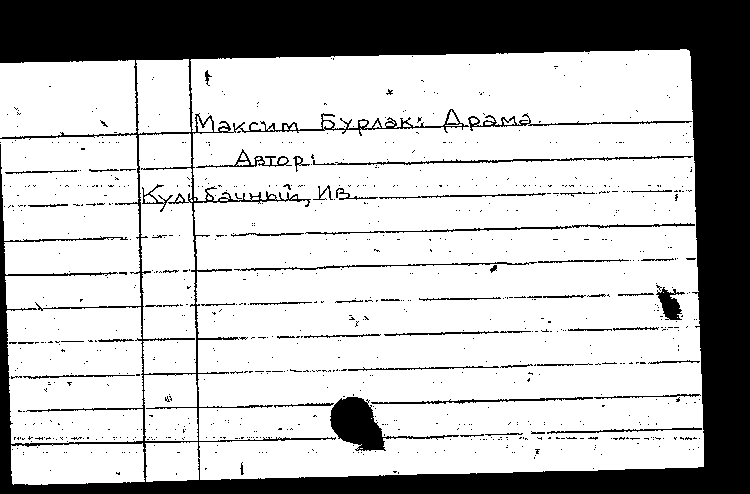 Максим Бурлак: Драма.
Автор:
Кульбачный, Ив.